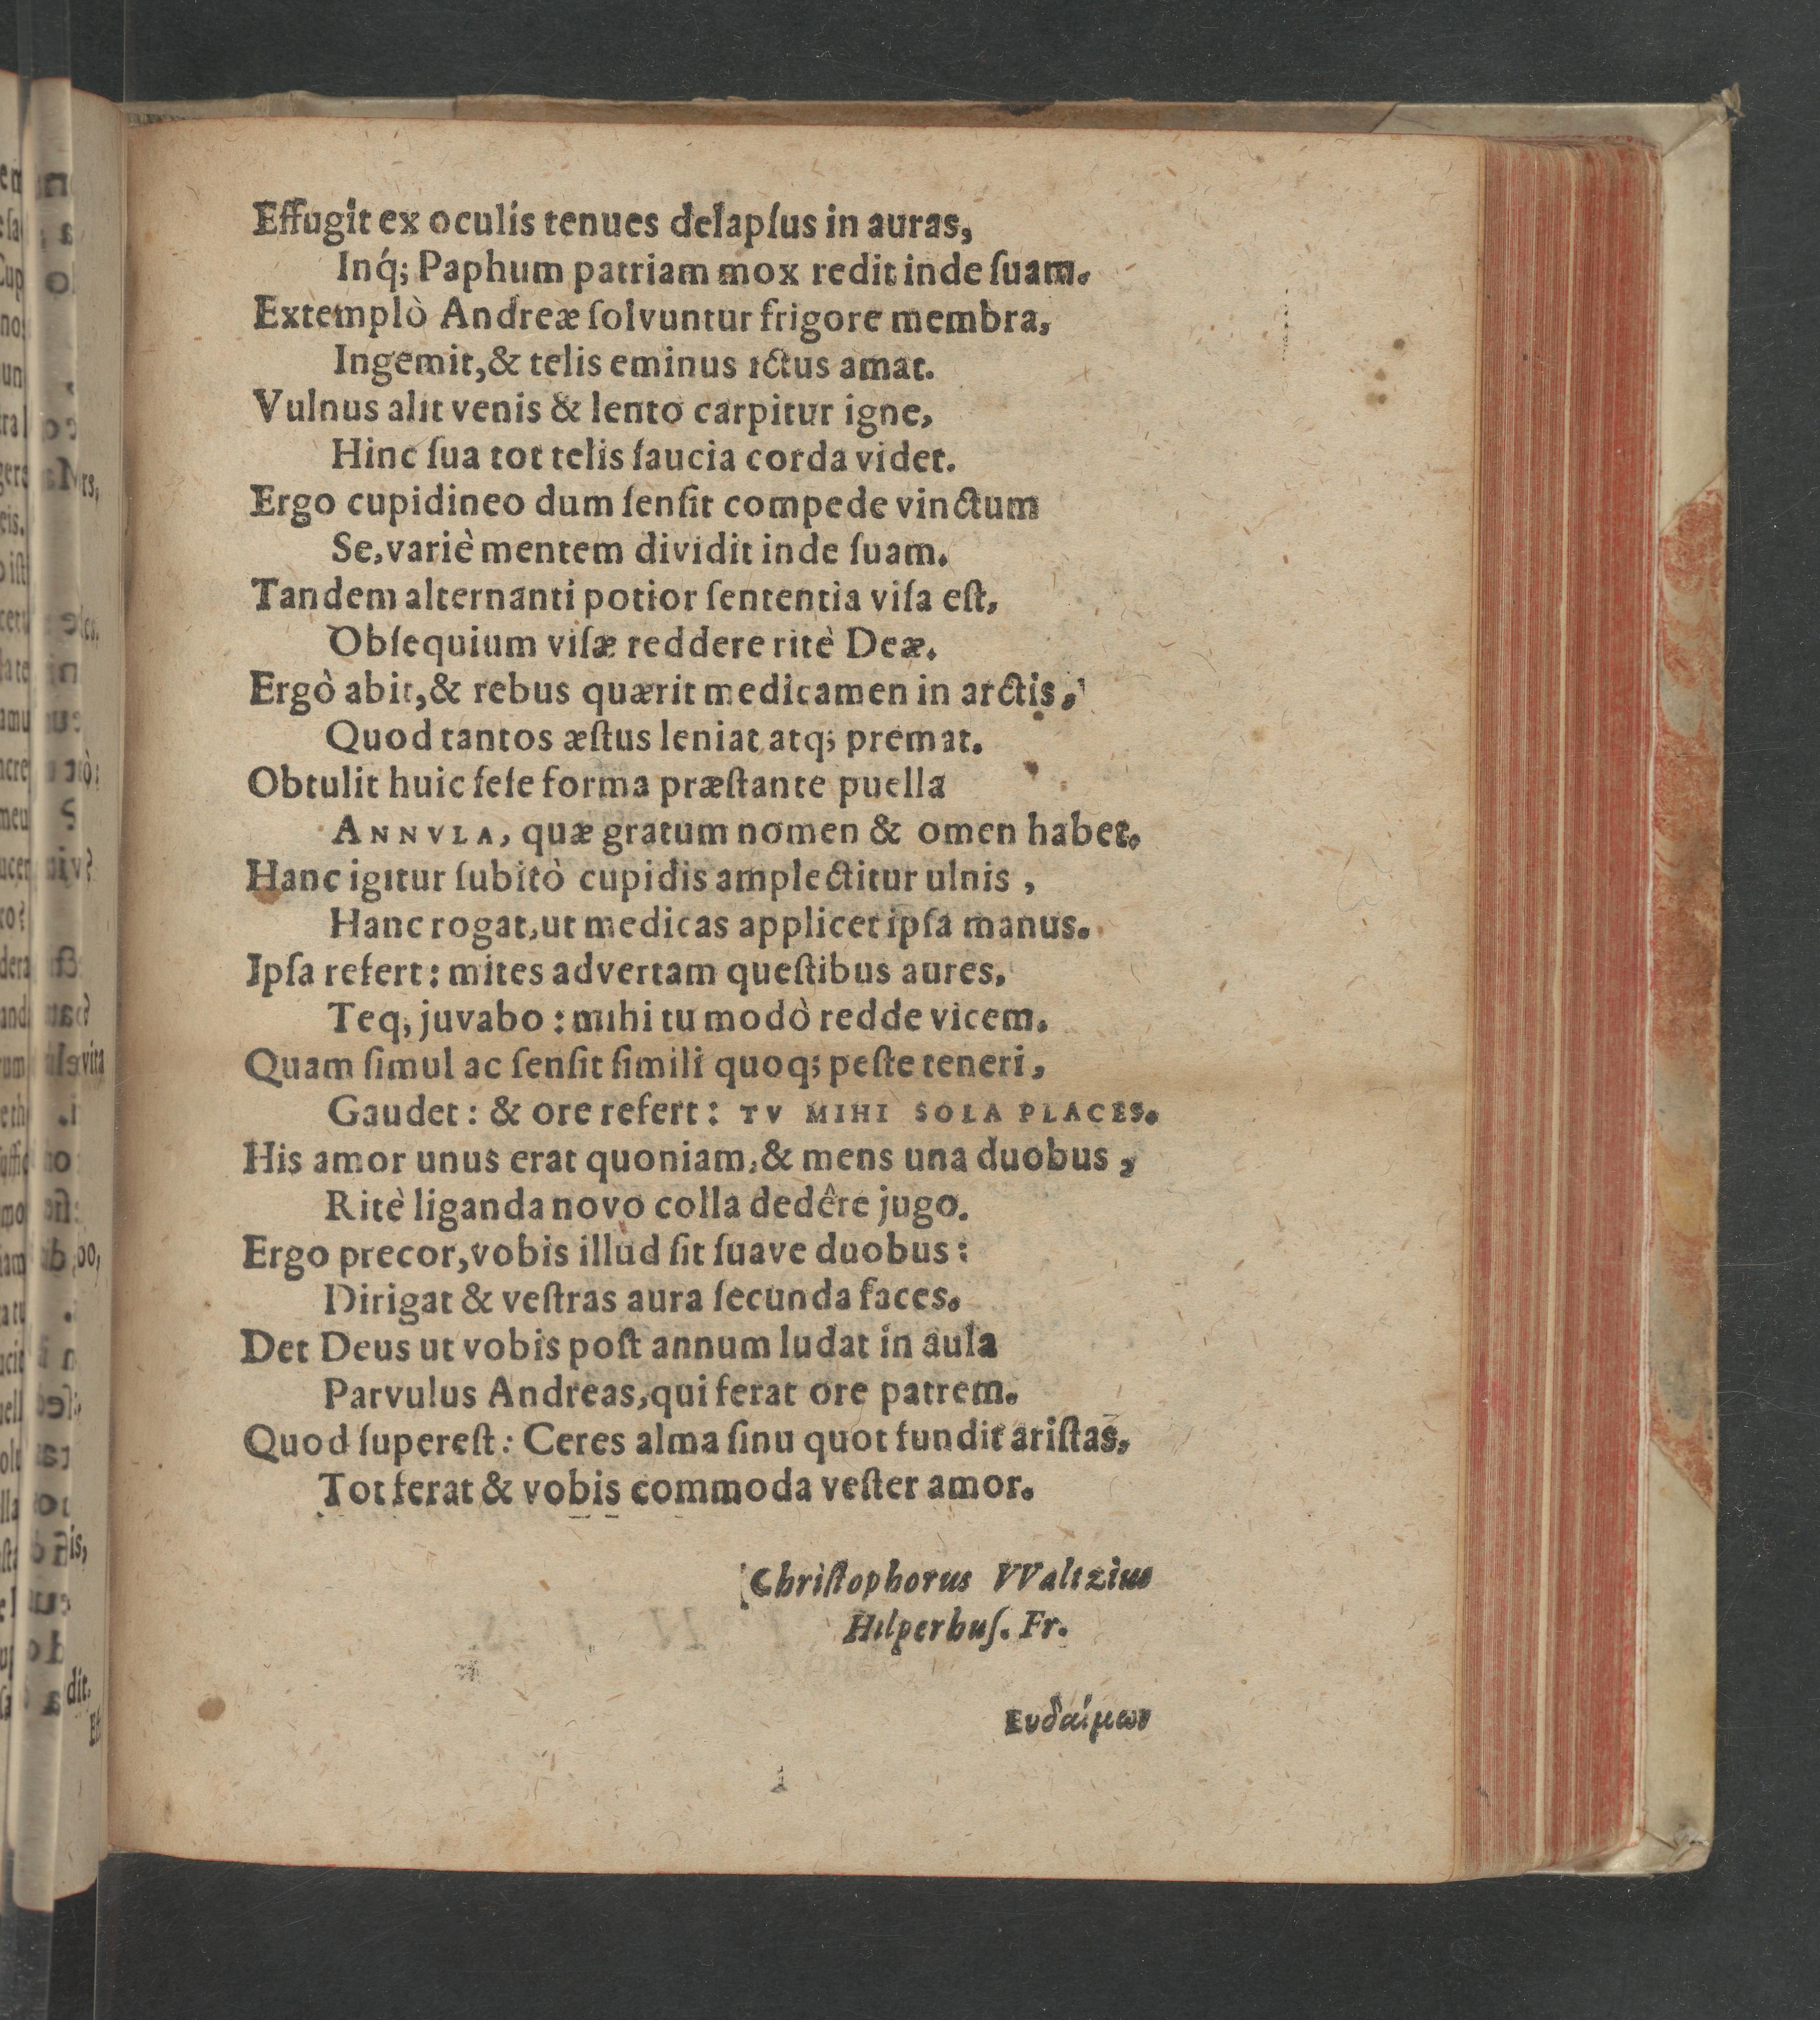 Effugit ex oculis tenues delapſus in auras,
Inq́; Paphum patriam mox redit inde ſuam.
Extemplò Andreæ ſolvuntur frigore membra,
Ingemit, & telis eminus ictus amat.
Vulnus alit venis & lento carpitur igne,
Hinc ſua tot telis ſaucia corda videt.
Ergo cupidineo dum ſenſit compede vinctum
Se, variè mentem dividit inde ſuam.
Tandem alternanti potior ſententia viſa eſt,
Obſequium viſæ reddere ritè Deæ.
Ergò abit, & rebus quærit medicamen in arctis,
Quod tantos æſtus leniat atq; premat.
Obtulit huic ſeſe forma præſtante puella
ANNVLA, quæ gratum nomen & omen habet.
Hanc igitur ſubitò cupidis amplectitur ulnis,
Hanc rogat, ut medicas applicet ipſa manus.
Ipſa refert: mites advertam queſtibus aures,
Teq; juvabo: mihi tu modò redde vicem.
Quam ſimul ac ſenſit ſimili quoq; peſte teneri,
Gaudet: & ore refert: TV MIHI SOLA PLACES.
His amor unus erat quoniam, & mens una duobus,
Ritè liganda novo colla dedêre jugo.
Ergo precor, vobis illud ſit ſuave duobus:
Dirigat & veſtras aura ſecunda faces.
Det Deus ut vobis poſt annum ludat in aula
Parvulus Andreas, qui ferat ore patrem.
Quod ſupereſt: Ceres alma ſinu quot fundit ariſtas,
Tot ferat & vobis commoda veſter amor.
Chriſtophorus VValtzius
Hilperhuſ. Fr.
Ευδαίμων